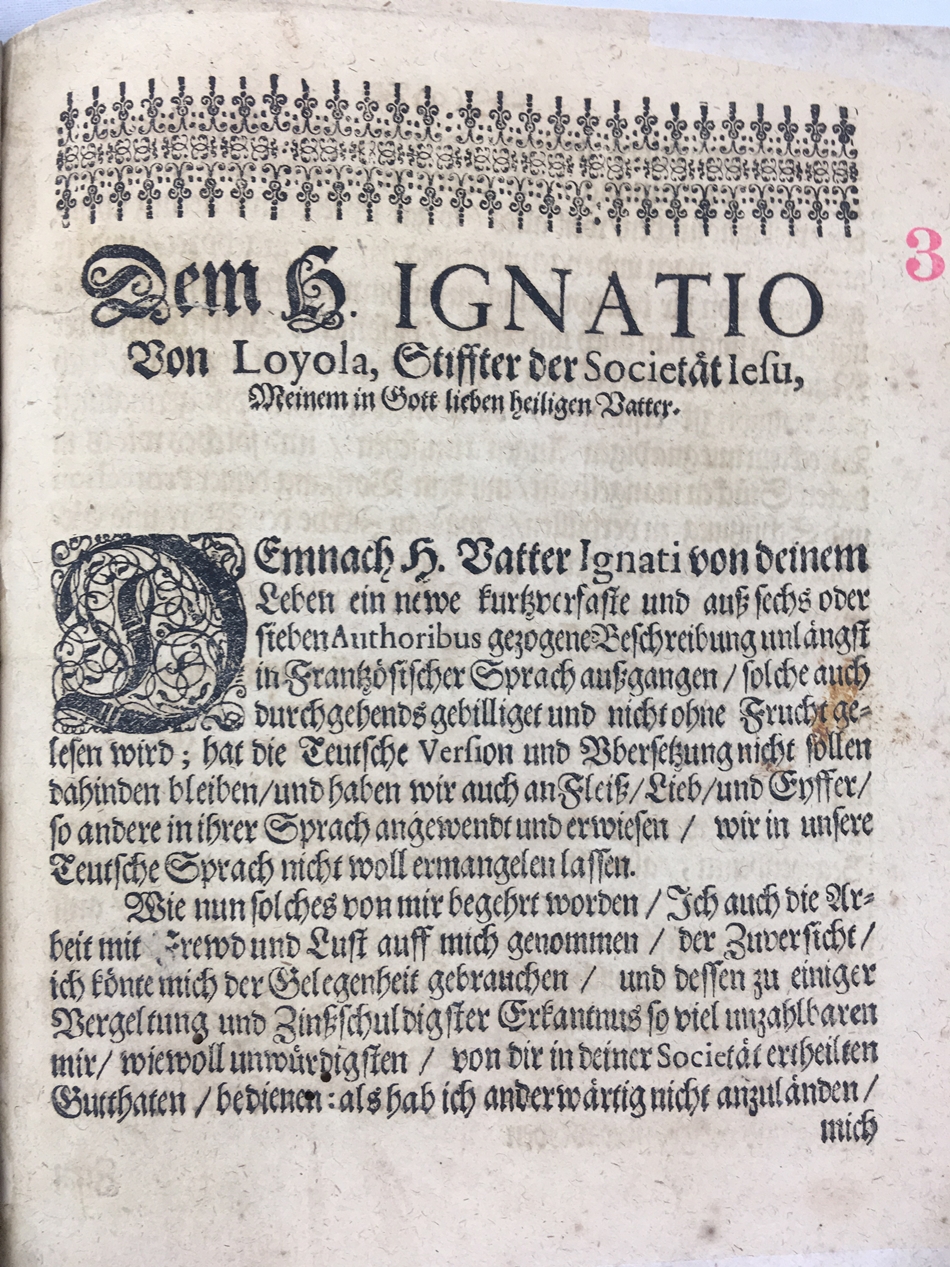 Dem H. IGNATIO
3
Von Loyola, Stiffter der Societät Iesu,
Meinem in Gott lieben heiligen Vatter.
DEmnach H. Vatter Ignati von deinem
Leben ein newe kurtzverfaste und auß sechs oder
sieben Authoribus gezogene Beschreibung unlängst
in Frantzösischer Sprach außgangen / solche auch
durchgehends gebilliget und nicht ohne Frucht ge-
lesen wird; hat die Teutsche Version und Vbersetzung nicht sollen
dahinden bleiben/und haben wir auch an Fleiß/Lieb/und Eyffer/
so andere in ihrer Sprach angewendt und erwiesen / wir in unsere
Teutsche Sprach nicht woll ermangelen lassen.
Wie nun solches von mir begehrt worden / Ich auch die Ar-
beit mit Frewd und Lust auff mich genommen / der Zuversicht/
ich könte mich der Gelegenheit gebrauchen / und dessen zu einiger
Vergeltung und Zinßschuldigster Erkantnus so viel unzahlbaren
mir/ wiewoll unwürdigsten / von dir in deiner Societät ertheilten
Gutthaten / bedienen: als hab ich anderwärtig nicht anzuländen/
mich